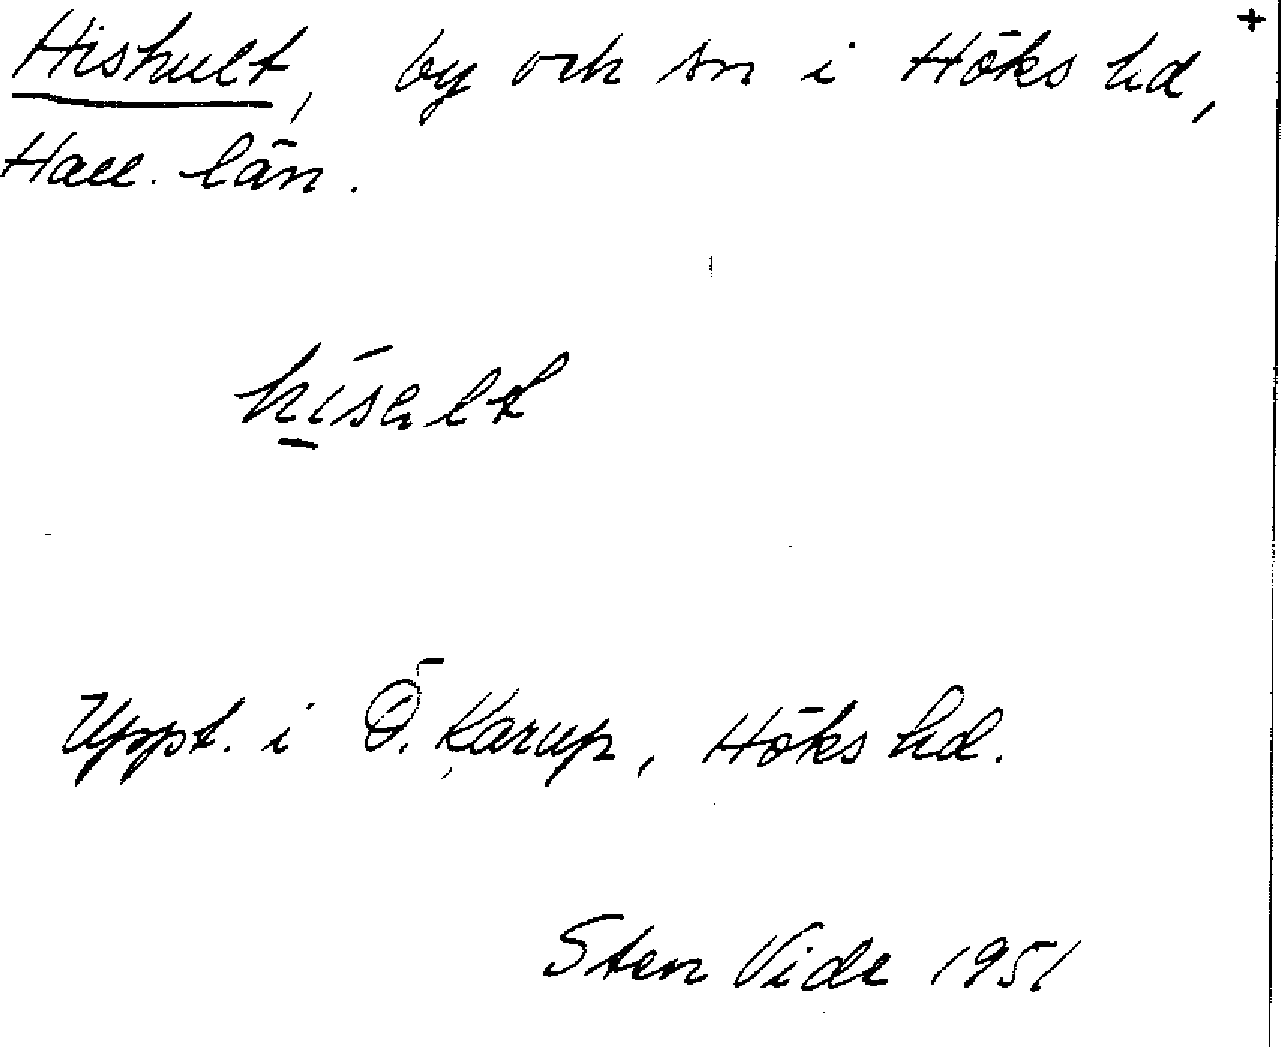 +
Hishult, by och sn i Höks hd,
Hall. län.
hisalt
Uppt. i Ö. Karup, Höks hd.
Sten Vide 1951